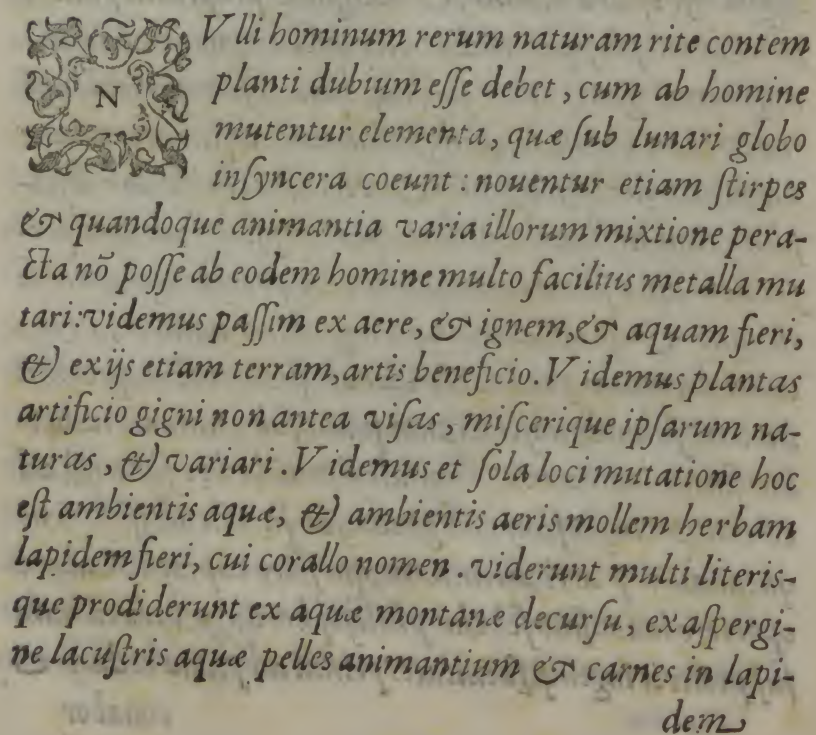 NVlli hominum rerum naturam rite contem
planti dubium eſſe debet, cum ab homine
mutentur elementa, quæ ſub lunari globo
inſyncera coeunt: nouentur etiam ſtirpes
& quandoque animantia varia illorum mixtione pera-
cta nõ poſſe ab eodem homine multo facilius metalla mu
tari: videmus paſſim ex aere, & ignem, & aquam fieri,
& ex ijs etiam terram, artis beneficio. Videmus plantas
artificio gigni non antea viſas, miſcerique ipſarum na-
turas, & variari. Videmus et ſola loci mutatione hoc
eſt ambientis aquæ, & ambientis aeris mollem herbam
lapidem fieri, cui corallo nomen. viderunt multi literis-
que prodiderunt ex aquæ montanæ decurſu, ex aſpergi-
ne lacuſtris aquæ pelles animantium & carnes in lapi-
dem